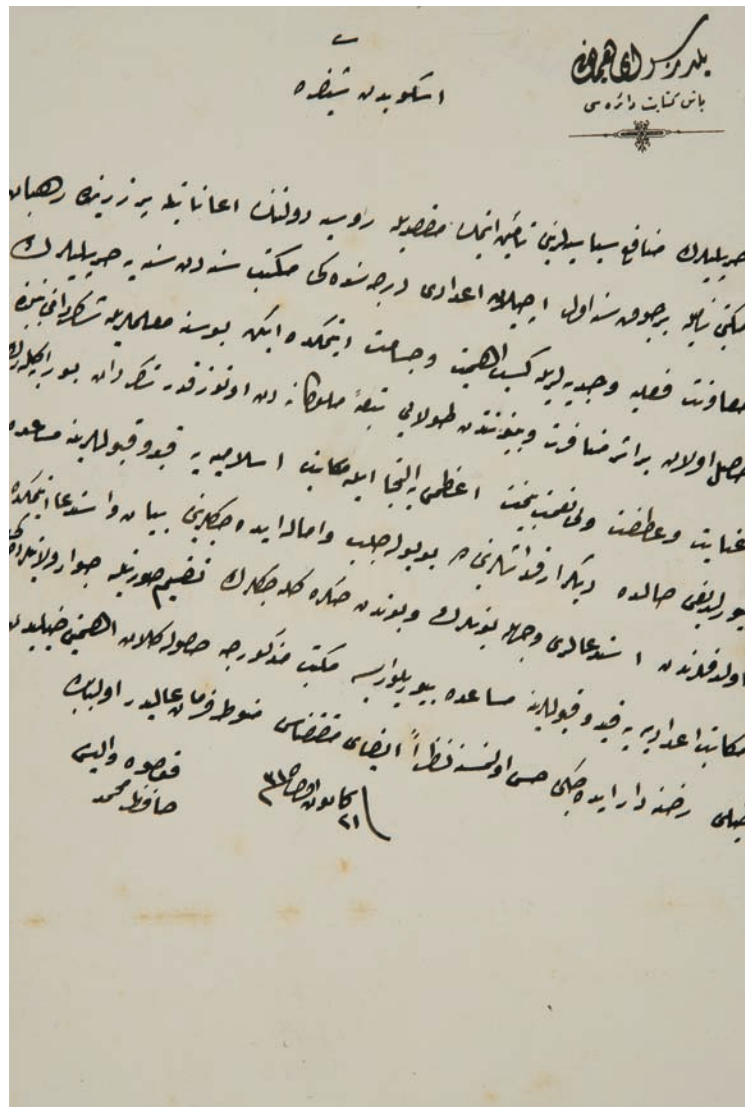 يلديز سراى همايونى
باش كتابت دائره سى
اسكوبدن شيفره
صربليلرك منافع سياسيه لرينى تأمين ايتمك مقصديله روسيه دولتنك اعاناتيله پرزرينده رهبان
مكتبى ناميله برچوق سنه اول آچيلان اعدادى درجه سنده كى مكتب سنه دن سنه يه صربليلرك
معاونت فعليه وجديه لريله كسب اهميت وجسامت ايتمكده ايكن بوسنه معلملريله شاكردانى بيننده
حاصل اولان براثر منافرت و مباينتدن طولايى تبعۀ ملوكانه دن اوتوز قدر شاكردان
عنايت وعطوفت ولى نعمت اعظمى يه التجا ايله مكاتب اسلاميه يه قيد وقبوللرينه مساعده
بيورلديغى حالده ديكر ارقداشلرينى ده بويوله جلب واماله ايده جكلرينى بيان واستدعا ايتمكده
اولدقلرندن استدعالرى وجهله بونلرك وبوندن صكره كله جكلرك تقسيم صورتيله جوار ولايتلرده كى
مكاتب اعداديه يه قيد وقبوللرينه مساعده بيوريلورسه مكتب مذكورجه حصوله كلان اهميتى خيليدن
خيلى رخنه دار ايده جكى حس اولنمسنه نظراً ايفاى مقتضاسى منوط فرمان عاليدر اولبابده
قوصوه واليسى
حافظ محمد
٢١ كانون اول سنه ٣١٦